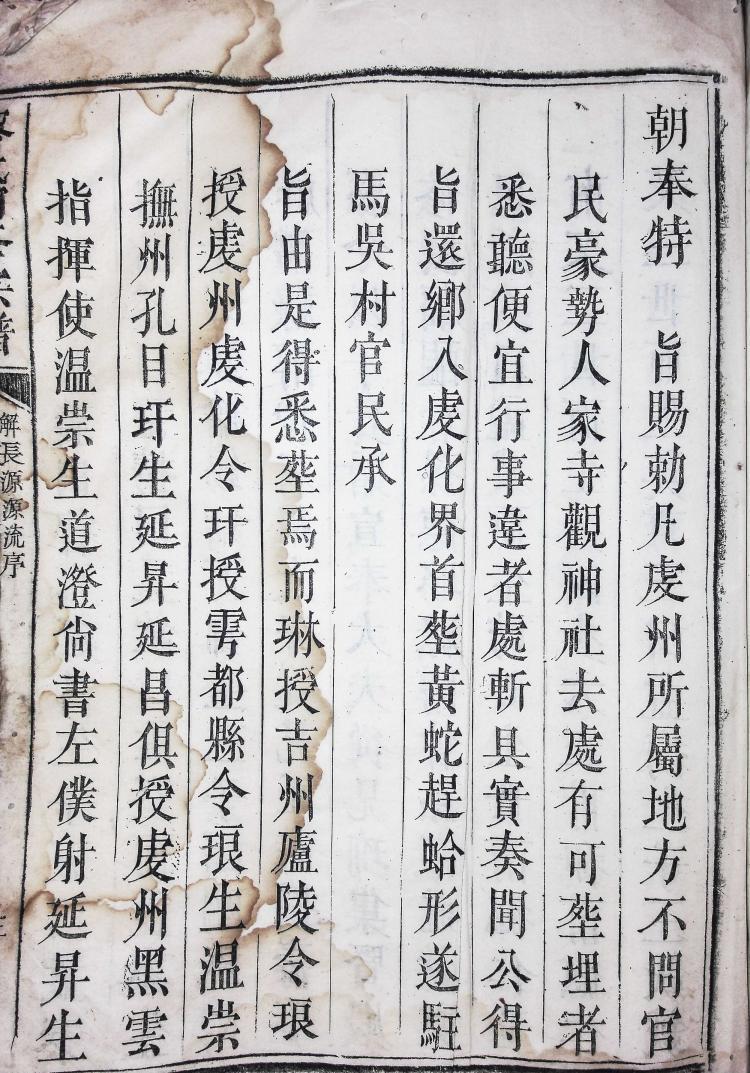 朝奉特　旨賜勅凡虔州所屬地方不問官
民豪勢人家寺觀神社去處有可塟埋者
悉聽便宜行事違者處斬具實奏聞公得
旨還鄉入虔化界首塟黃蛇趕蛤形遂駐
馬吳村官民承
旨由是得悉塟焉而琳授吉州廬陵令琅
授虔州虔化令玕授雩都縣令琅生温崇
撫州孔目玕生延昇延昌俱授虔州黑雲
指揮使温崇生道澄尙書左僕射延昇生
解長源源流序